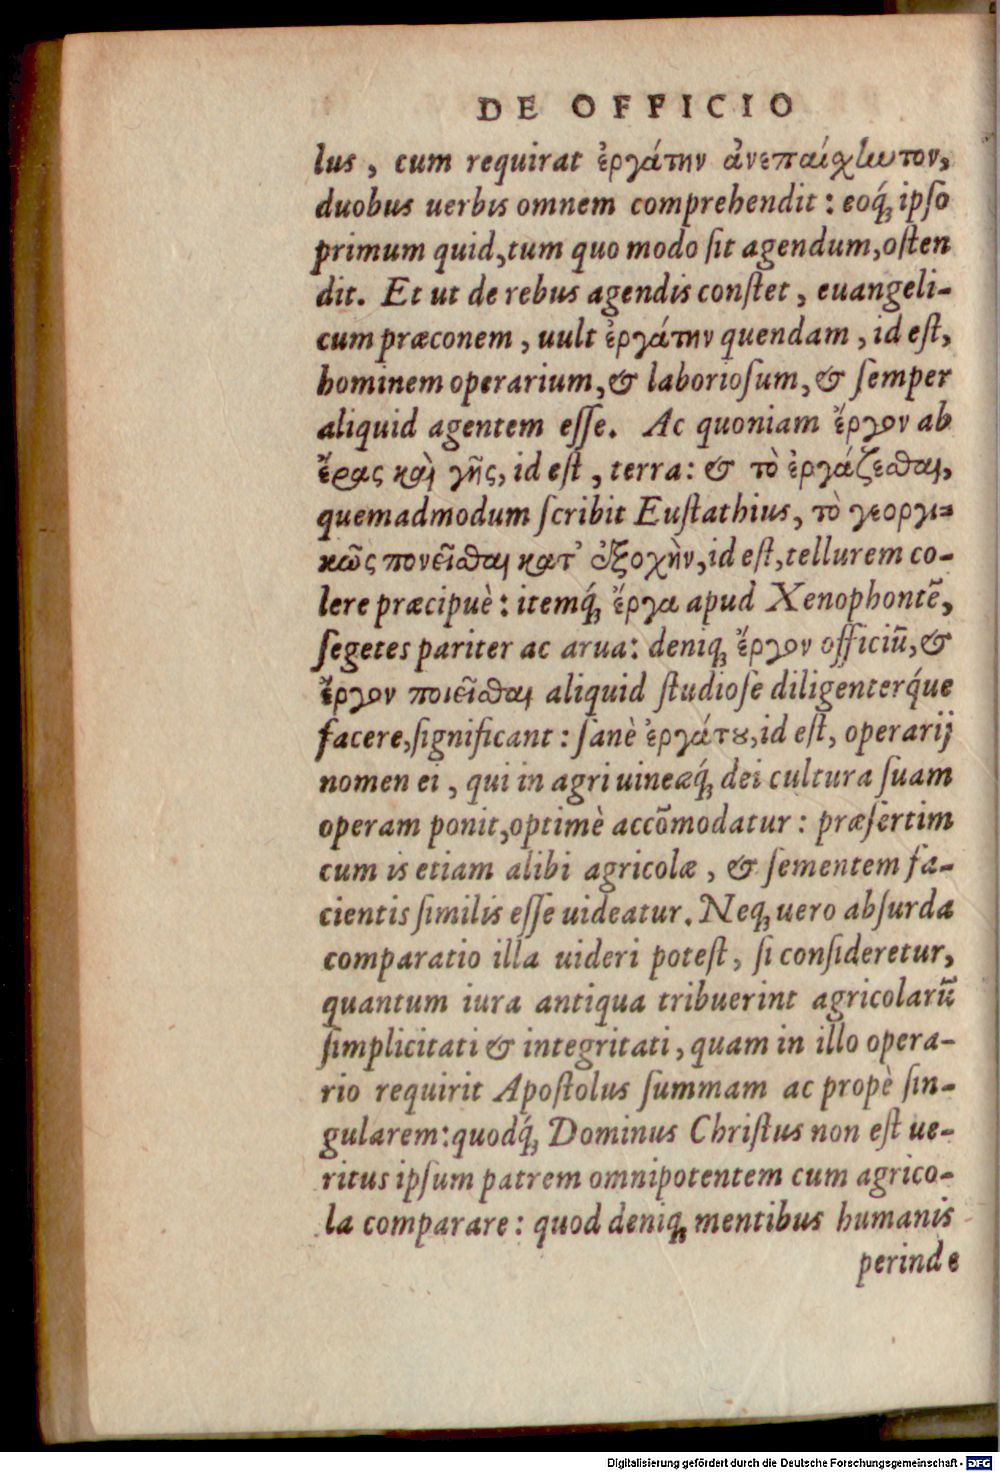 DE OFFICIO
lus, cum requirat ἐργάτην ἀνεπαίσχυντον,
duobus uerbis omnem comprehendit: eoq́; ipso
primum quid, tum quo modo sit agendum, osten
dit. Et ut de rebus agendis constet, euangeli-
cum præconem, uult ἐργάτην quendam, id est,
hominem operarium, & laboriosum, & semper
aliquid agentem esse. Ac quoniam ἔργον ab
ἔρας καὶ γῆς, id est, terra: & τὸ ἐργάζεσθαι,
quemadmodum scribit Eustathius, τὸ γεοργι=
κῶς πονεῖσθαι κατ᾽ ἐξοχὴν, id est, tellurem co-
lere præcipuè: itemq́; ἔργα apud Xenophontẽ,
segetes pariter ac arua: deniq; ἔργον officiũ, &
ἔργον ποιεῖσθαι aliquid studiose diligenterq́ue
facere, significant: sanè ἐργάτου, id est, operarij
nomen ei, qui in agri uineæq́; dei cultura suam
operam ponit, optimè accõmodatur: præsertim
cum is etiam alibi agricolæ, & sementem fa-
cientis similis esse uideatur. Neq; uero absurda
comparatio illa uideri potest, si consideretur,
quantum iura antiqua tribuerint agricolarũ
simplicitati & integritati, quam in illo opera-
rio requirit Apostolus summam ac propè sin-
gularem: quodq́; Dominus Christus non est ue-
ritus ipsum patrem omnipotentem cum agrico-
la comparare: quod deniq; mentibus humanis
perinde
Digitalisierung gefördert durch die Deutsche Forschungsgemeinschaft - DFG